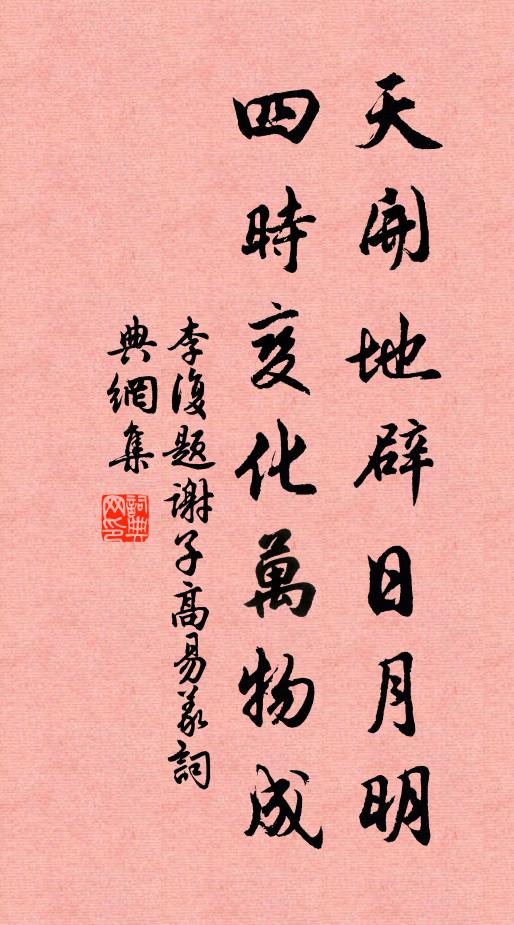 天開地辟日月明
四時变化萬物成
李復題謝子高易義詞
典網集
詞典
网印